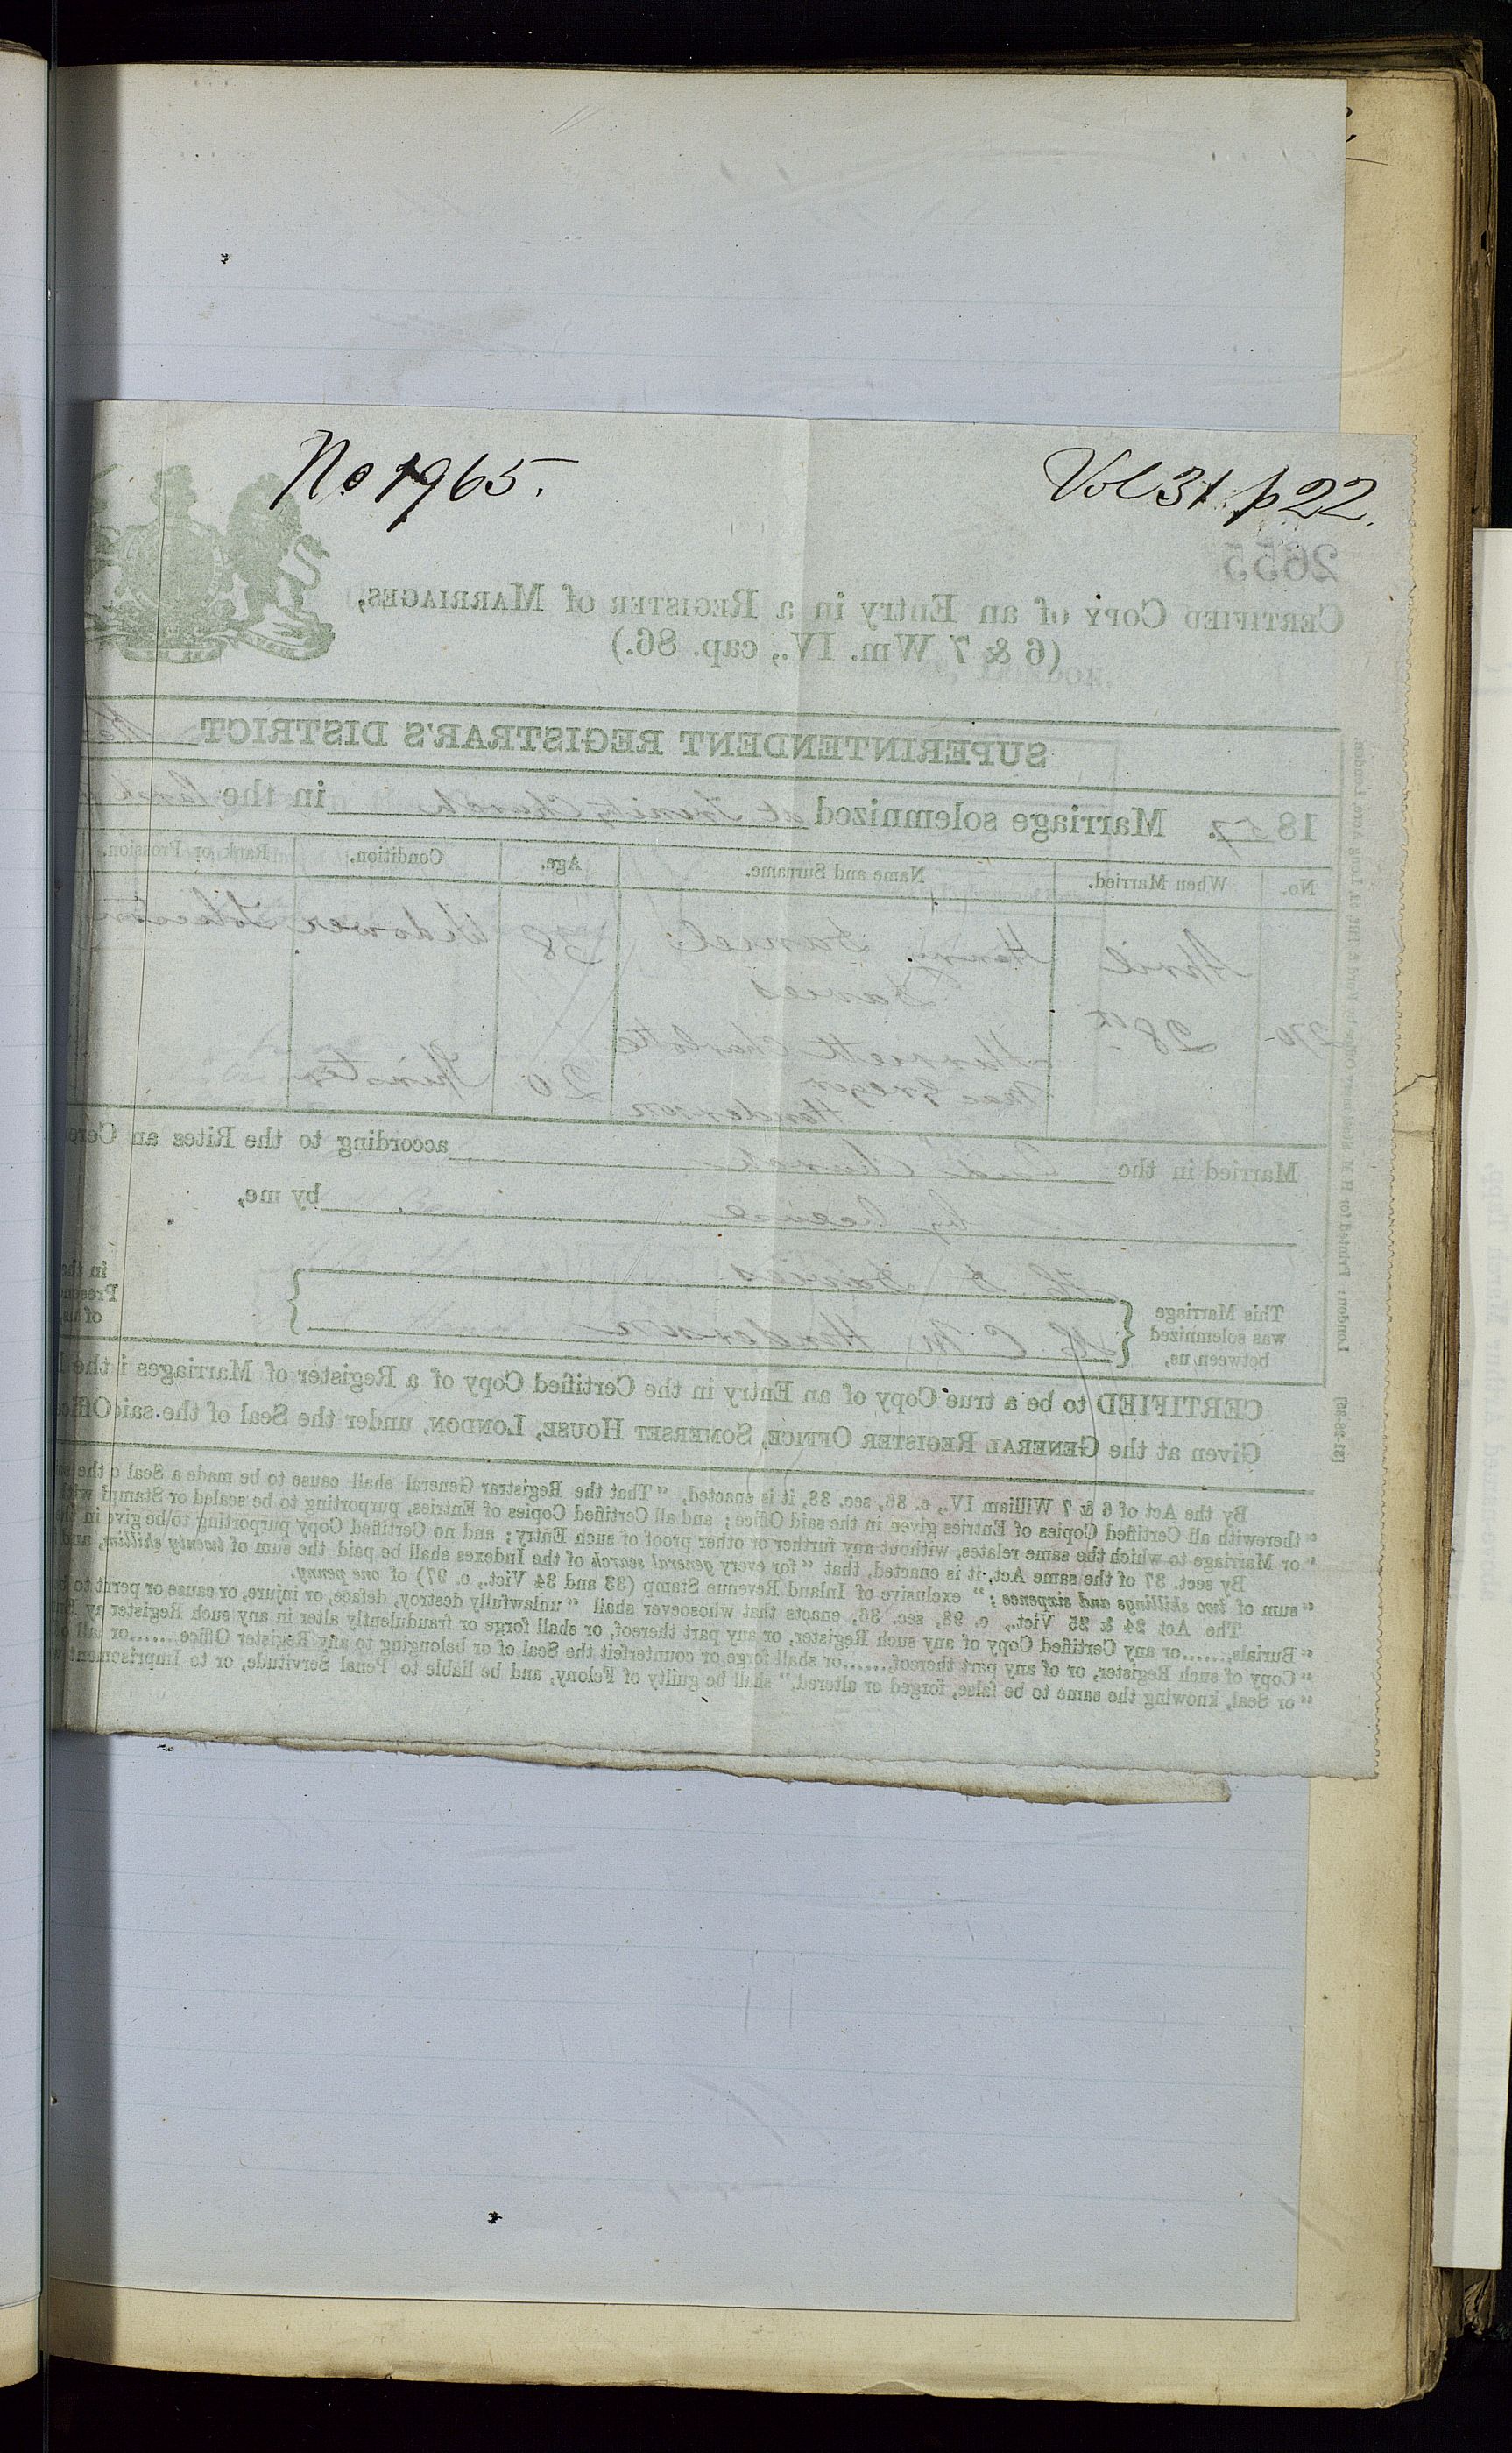 No 1965.
Vol 31 p 22.
2655
CERTIFIED COPY of an Entry in a REGISTER of MARRIAGES,
(6 & 7 Wm. IV., cap. 86.)
SUPERINTENDENT REGISTRAR'S DISTRICT
1857. Marriage solemnized at Trinity Church in the
No. When Married. Name and Surname. Age. Condition. Rank or Profession.
270 April 28th Henry Daniel Davies 38 Widower
Harriett Charlotte Mac Gregor Henderson 20 Spinster
Married in the Said Church according to the Rites an Cere
by license by me,
This Marriage was solemnized between us, H. D. Davies
H. C. M. Henderson
in the Presence of us,
CERTIFIED to be a true Copy of an Entry in the Certified Copy of a Register of Marriages i the
Given at the GENERAL REGISTER OFFICE, SOMERSET HOUSE, LONDON, under the Seal of the said Office
By the Act of 6 & 7 William IV., c. 86, sec. 38, it is enacted, "That the Registrar General shall cause to be made a Seal o the
"therewith all Certified Copies of Entries given in the said Office; and all Certified Copies of Entries, purporting to be sealed or Stamp with
"or Marriage to which the same relates, without any further or other proof of such Entry; and no Certified Copy purporting to be give in the
By sect. 37 of the same Act, it is enacted, that "for every general search of the Indexes shall be paid the sum of twenty shillin, and
"sum of two shillings and sixpence;" exclusive of Inland Revenue Stamp (33 and 34 Vict., c. 97) of one penny.
The Act 24 & 25 Vict., c. 98, sec. 36, enacts that whosoever shall "unlawfully destroy, deface, or injure, or cause or permit to
"Burials,......or any Certified Copy of any such Register, or any part thereof, or shall forge or fraudulently alter in any such Register
"Copy of such Register, or of any part thereof,......or shall forge or counterfeit the Seal of or belonging to any Register Office......or
"or Seal, knowing the same to be false, forged or altered," shall be guilty of Felony, and be liable to Penal Servitude, or to Imprisonment